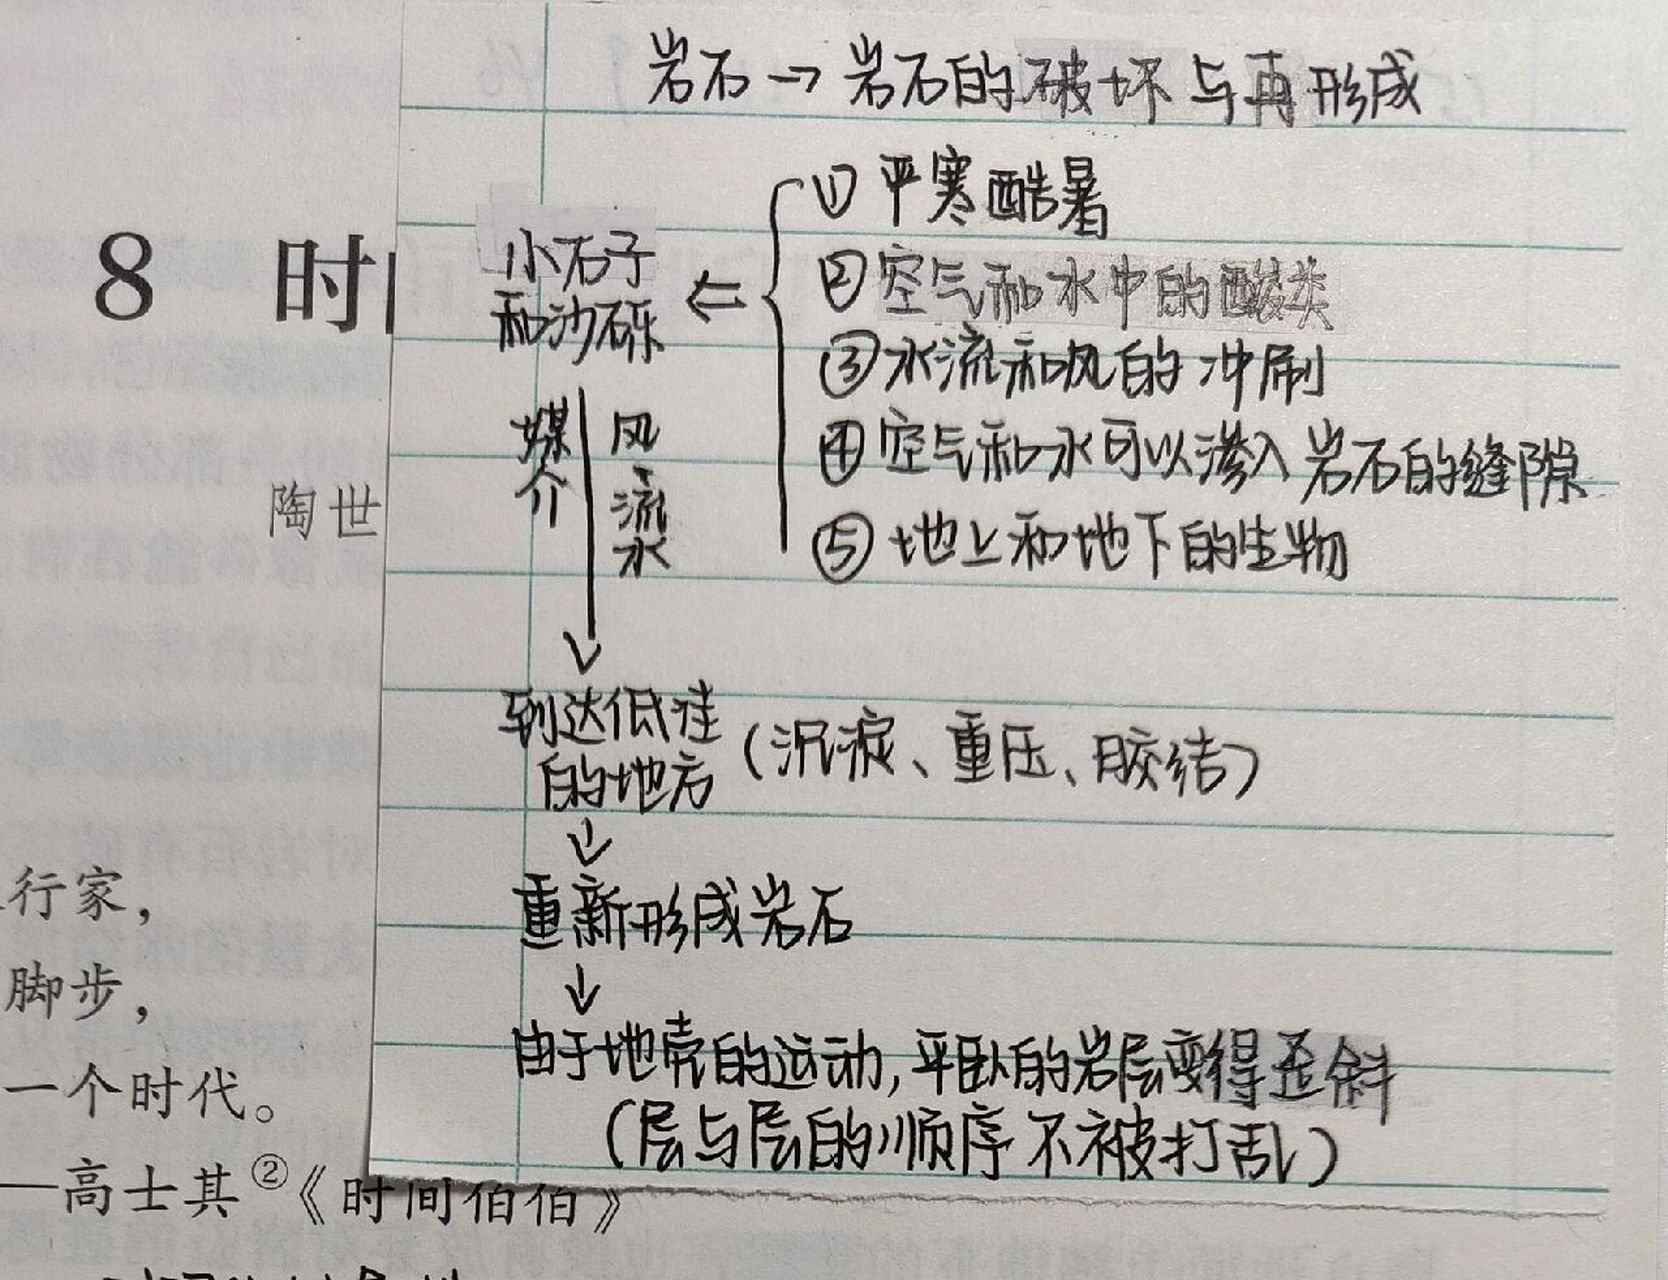 岩石→岩石的破坏与再形成
①严寒酷暑
8 时
小石子
和沙砾 ⇐
②空气和水中的酸类
③水流和风的冲刷
媒介 风、流水
④空气和水可以渗入岩石的缝隙
陶世
⑤地上和地下的生物
到达低洼
的地方(沉淀、重压、胶结)
↓
行家,
重新形成岩石
脚步,
↓
由于地壳的运动,平卧的岩层变得歪斜
一个时代。
(层与层的顺序不被打乱)
——高士其②《时间伯伯》